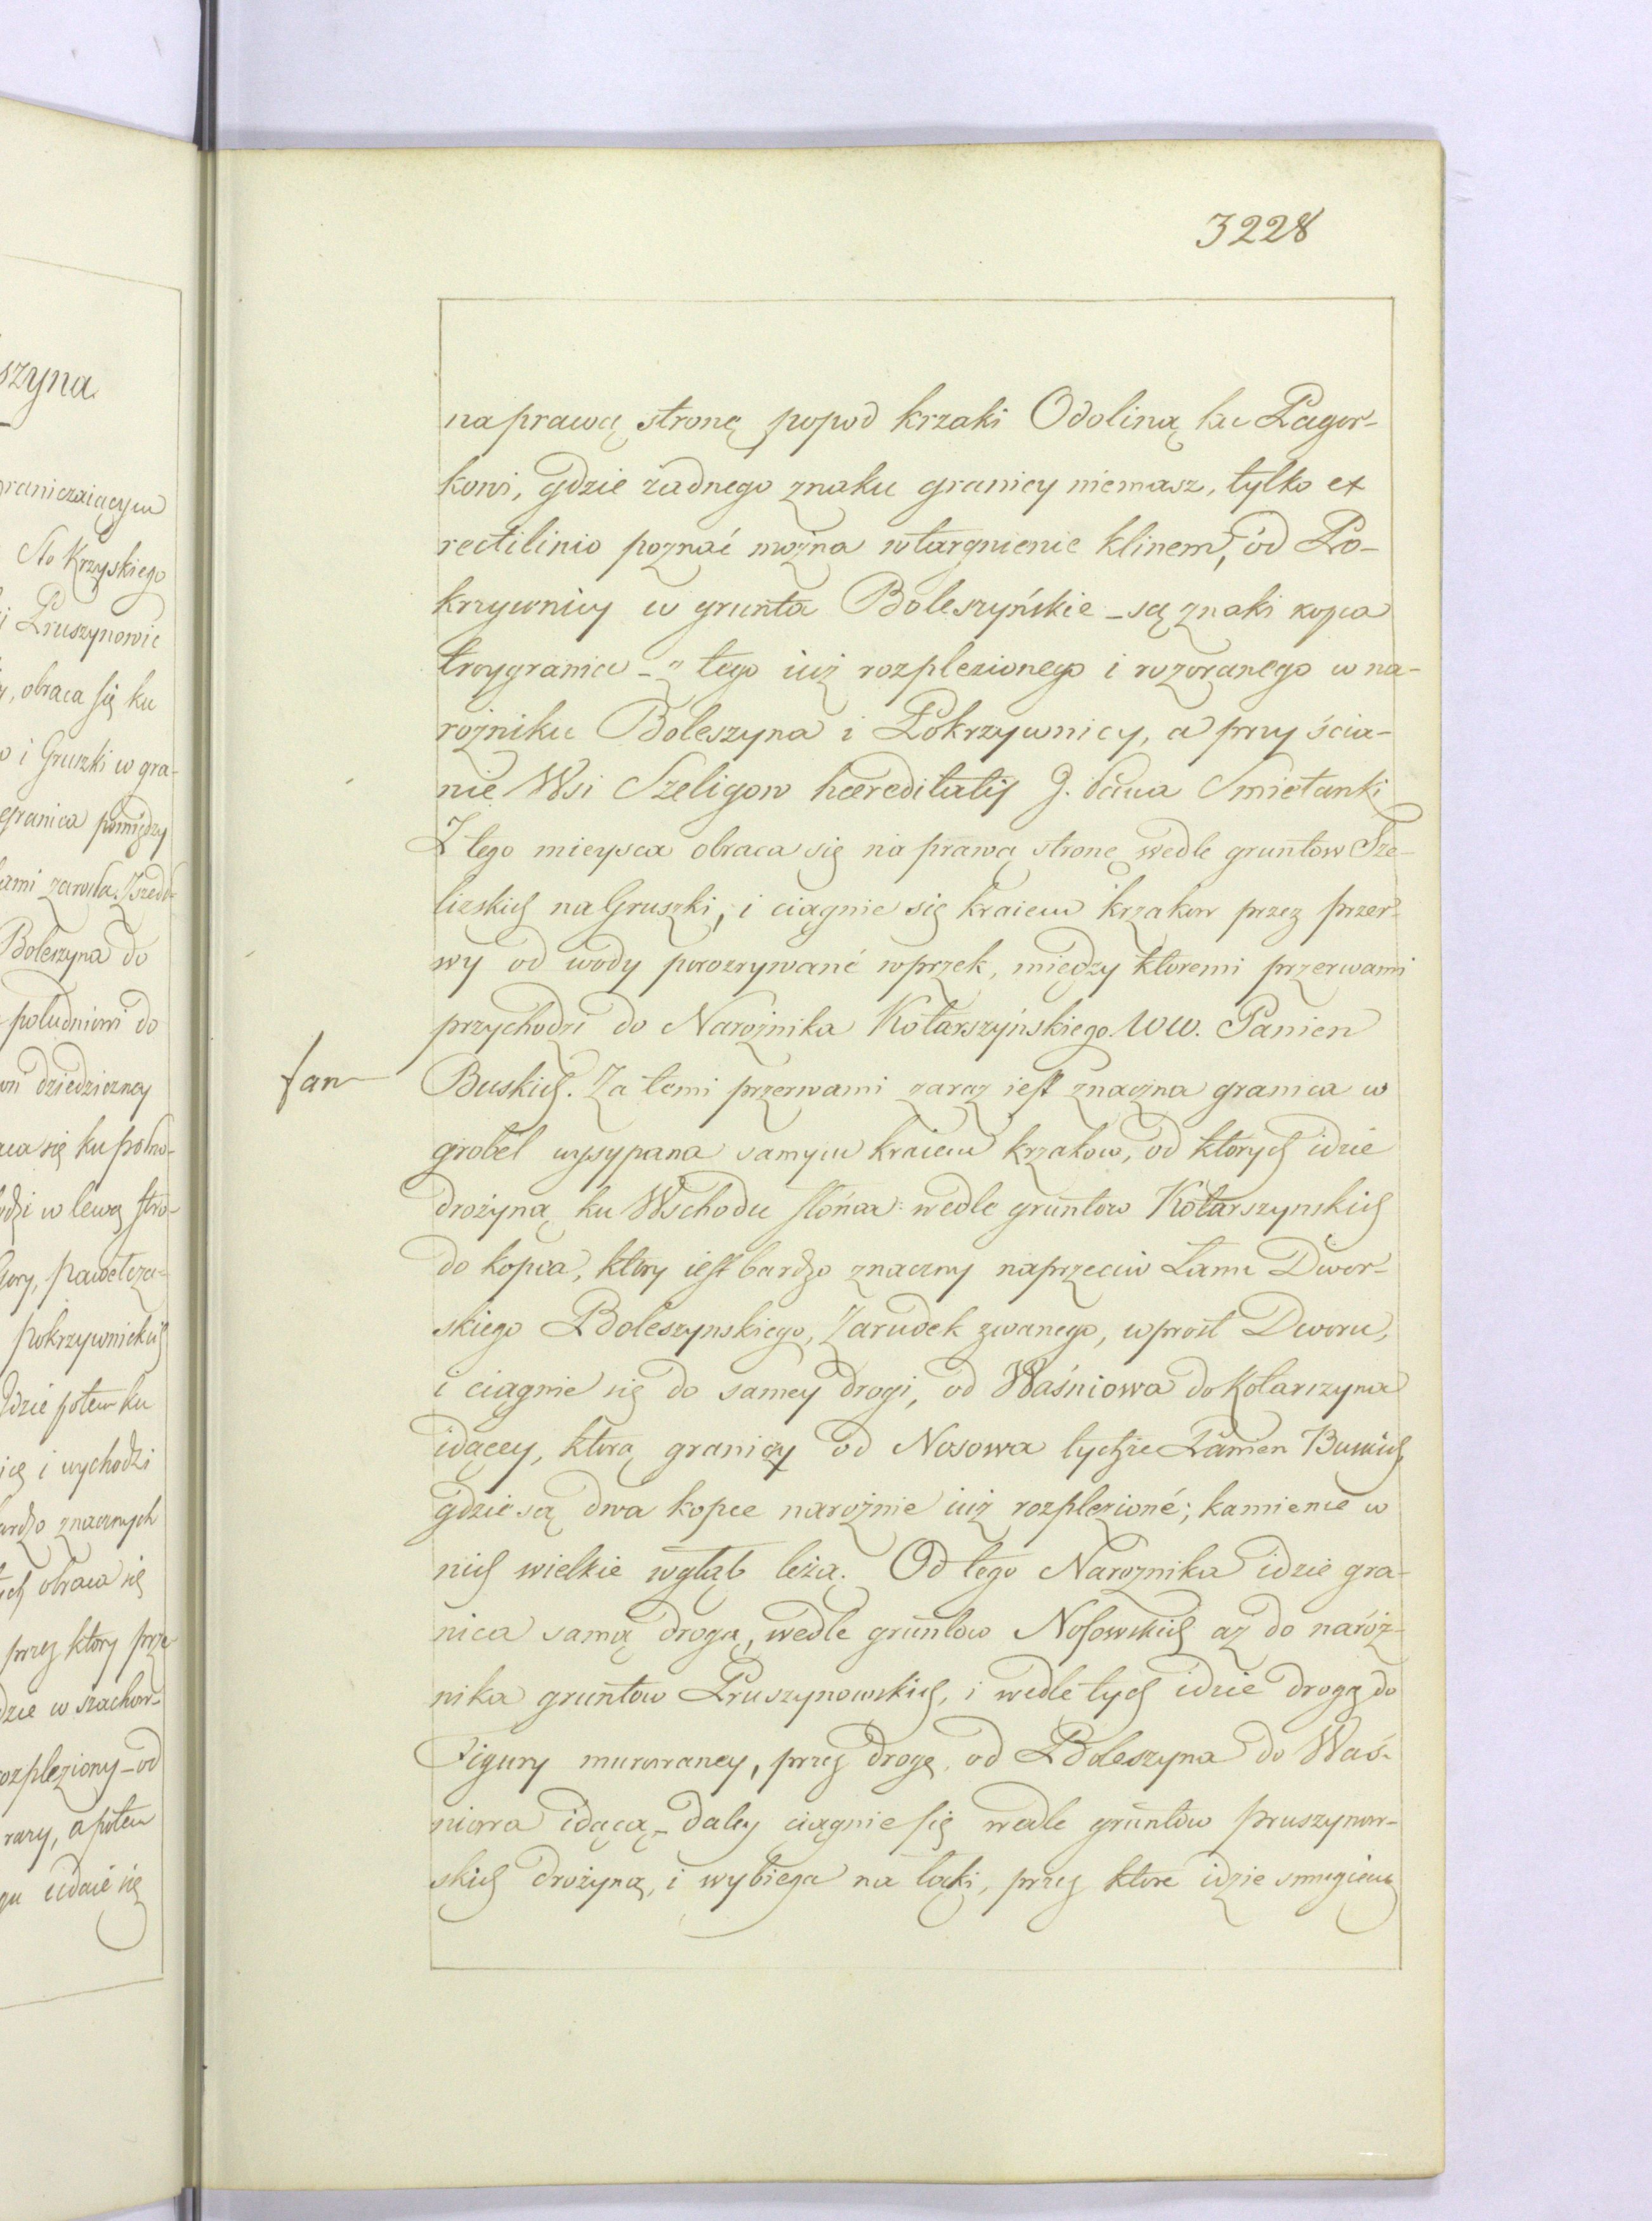 3228
na prawą stronę popod krzaki Odoliną ku Pagor-
kowi, gdzie żadnego znaku granicy niemasz, tylko ex
rectilinio poznać można wtargnienie klinem, od Po-
krzywnicy w grunta Boleszyńskie – są znaki kopca
troygranica – z tego iuż rozplezionego i rozoranego w na-
rożniku Boleszyna i Pokrzywnicy, a przy ścia-
nie Wsi Szeligow hæreditatis J. Pana Smietanki
Z tego mieysca obraca się na prawą stronę wedle gruntow Sze-
liskich na Gruszki, i ciągnie się kraiem krzakow przez przer-
wy od wody porozrywané wprzek, między ktoremi przerwami
przychodzi do Narożnika Kotarszyńskiego WW. Panien
Buskich. Za temi przerwami zaraz iest znaczna granica w
grobel wysypana samym kraiem krzakow, od ktorych idzie
drożyną ku Wschodu słońca wedle gruntow Kotarszynskich
do kopca, ktory iest bardzo znaczny naprzeciw Łanu Dwor-
skiego Boleszynskiego, Zarudek zwanego, wprost Dworu,
i ciągnie się do samey drogi, od Waśniowa do Kotarszyna
idącey, ktorą graniczy od Nosowa tychże Panien Buskich,
gdzie są dwa kopce narożnie iuż rozplezioné; kamienie w
nich wielkie wgłąb leżą. Od tego Narożnika idzie gra-
nica samą drogą, wedle gruntow Nosowskich aż do naróż-
nika gruntow Pruszynowskich, i wedle tych idzie drogą do
Figury murowaney, przez drogę, od Boleszyna do Waś-
niowa idącą – daley ciągnie się wedle gruntow Pruszynow-
skich drożyną, i wybiega na łąki, przez ktoré idzie smugiem
szyna
raniczaiącym
Sto Krzyskiego
i Pruszynowic
, obraca się ku
i Gruszki w gra-
granica pomiędzy
Boleszyna do
południowi do
dziedziczney
ca się ku połno-
w lewą stro-
pokrzywnickich
dzie potem ku
i wychodzi
ardzo znacznych
obraca się
przez ktory prze
dzie w szachow-
ozpleziony – od
razy, a potem
udaie się